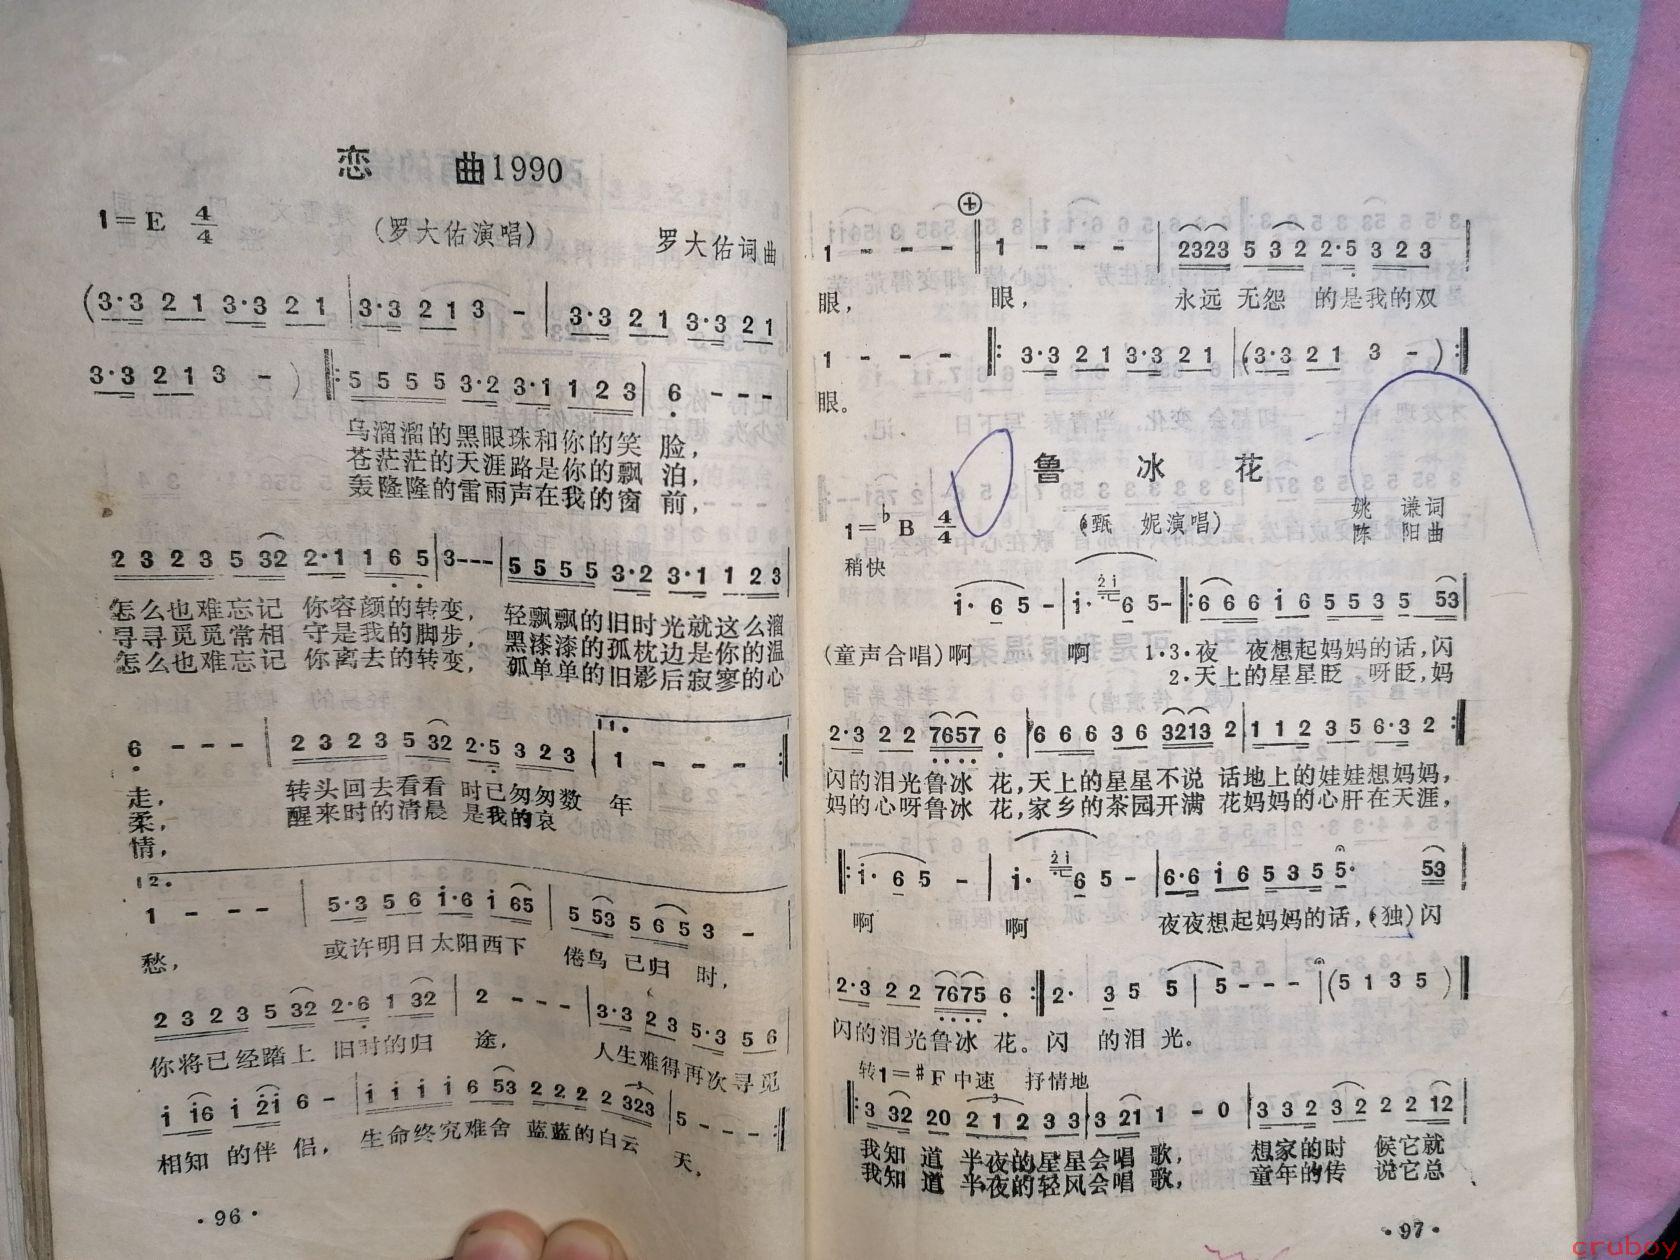 恋 曲1990
1=E 4/4 (罗大佑演唱) 罗大佑词曲
(3·3 2 1 3·3 2 1 | 3·3 2 1 3 - | 3·3 2 1 3·3 2 1
3·3 2 1 3 - ) ‖: 5 5 5 5 3·2 3·1 1 2 3 | 6 - - -
乌溜溜的黑眼珠和你的笑 脸,
苍茫茫的天涯路是你的飘 泊,
轰隆隆的雷雨声在我的窗 前,
2 3 2 3 5 32 2·1 1 6 5 | 3 - - - | 5 5 5 5 3·2 3·1 1 2 3
怎么也难忘记 你容颜的转变, 轻飘飘的旧时光就这么溜
寻寻觅觅常相 守是我的脚步, 黑漆漆的孤枕边是你的温
怎么也难忘记 你离去的转变, 孤单单的旧影后寂寥的心
6 - - - | 2 3 2 3 5 32 2·5 3 2 3 | 1. 1 - - - :‖
走, 转头回去看看 时已匆匆数 年
柔, 醒来时的清晨 是我的哀
情,
2.
1 - - - | 5·3 5 6 i·6 i 65 | 5 53 5 6 5 3 -
愁, 或许明日太阳西下 倦鸟 已归 时,
2 3 2 3 5 32 2·6 1 32 | 2 - - - | 3·3 2 3 5·3 5 6
你将已经踏上 旧时的归 途, 人生难得再次寻觅
i i6 i 2i 6 - | i i i i 6 53 2 2 2 2 323 | 5 - - - :‖
相知 的伴 侣, 生命终究难舍 蓝蓝的白云 天,
·96·
1 - - - ‖ 1 - - - | 2323 5 3 2 2·5 3 2 3 |
眼, 眼, 永远 无怨 的是我的双
1 - - - ‖: 3·3 2 1 3·3 2 1 | (3·3 2 1 3 - ) :‖
眼。
鲁 冰 花
姚 谦词
1=♭B 4/4 (甄 妮演唱) 陈 阳曲
稍快
i· 6 5 - | i· 2i 6 5 - ‖: 6 6 6 i 6 5 5 3 5 53 |
(童声合唱)啊 啊 1·3·夜 夜想起妈妈的话,闪
2·天上的星星眨 呀眨,妈
2·3 2 2 7657 6 | 6 6 6 3 6 3213 2 | 1 1 2 3 5 6·3 2 :‖
闪的泪光鲁冰 花,天上的星星不说 话地上的娃娃想妈妈,
妈的心呀鲁冰 花,家乡的茶园开满 花妈妈的心肝在天涯,
‖: i· 6 5 - | i· 2i 6 5 - | 6·6 i 6 5 3 5 5· 53 |
啊 啊 夜夜想起妈妈的话,(独)闪
2·3 2 2 7675 6 :‖ 2· 3 5 5 | 5 - - - | (5 1 3 5 ) ‖
闪的泪光鲁冰 花。闪 的泪 光。
转1=#F 中速 抒情地
‖: 3 32 20 2 1 2 3 3 | 3 21 1 - 0 | 3 3 2 3 2 2 2 12 |
我知 道 半夜的星星会唱 歌, 想家的时 候它就
我知 道 半夜的轻风会唱 歌, 童年的传 说它总
·97·
cruboy